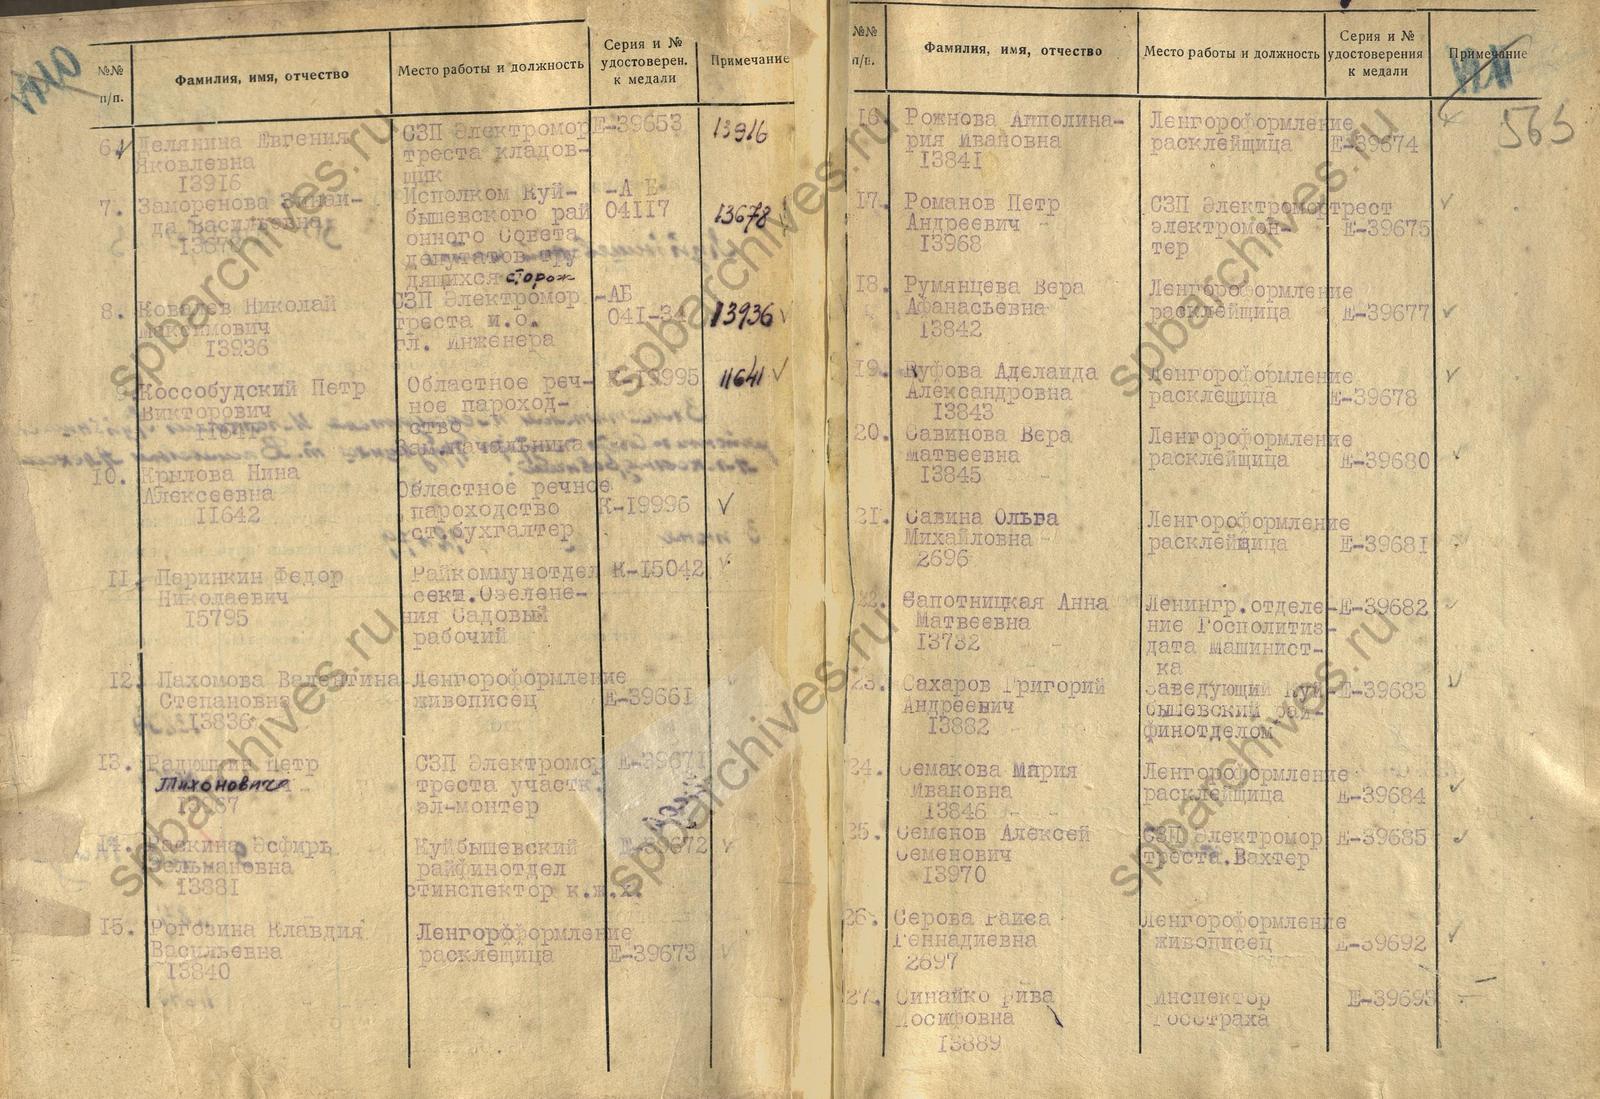 №№ п/п.
Фамилия, имя, отчество
Место работы и должность
Серия и № удостоверен. к медали
Примечание
6.
Делянина Евгения
Яковлевна
13916
СЗП Электромор
треста кладов-
щик
Е-39653
13916
7.
Заморенова Зинаи-
да Васильевна
Исполком Куй-
бышевского рай
онного Совета
депутатов тру
дящихся сторож
-А Е
04117
13678
8.
Ковалев Николай
Максимович
13936
СЗП Электромор
треста и.о.
гл. Инженера
-АБ
041-34
13936
9.
Коссобудский Петр
Викторович
11641
Областное реч-
ное пароход-
ство
Зам.начальника
К-19995
11641
10.
Крылова Нина
Алексеевна
11642
Областное речное
пароходство
ст.бухгалтер
К-19996
11.
Перинкин Федор
Николаевич
15795
Райкоммунотдел
сект.Озелене-
ния Садовый
рабочий
К-15042
12.
Пахомова Валентина
Степановна
13836
Ленгороформление
живописец
Е-39661
13.
Радюшкин Петр
Тихонович
СЗП Электромор
треста участк.
эл-монтер
Е-39671
14.
Раскина Эсфирь
13881
Куйбышевский
райфинотдел
стинспектор к.ж.х.
Е-39672
15.
Роговина Клавдия
Васильевна
13840
Ленгороформление
расклейщица
Е-39673
№№ п/п.
Фамилия, имя, отчество
Место работы и должность
Серия и № удостоверения к медали
Примечание
565
16.
Рожнова Апполина-
рия Ивановна
13841
Ленгороформление
расклейщица
Е-39674
17.
Романов Петр
Андреевич
13968
СЗП Электромортрест
электромон-
тер
Е-39675
18.
Румянцева Вера
Афанасьевна
13842
Ленгороформление
расклейщица
Е-39677
19.
Руфова Аделаида
Александровна
13843
Ленгороформление
расклейщица
Е-39678
20.
Савинова Вера
Матвеевна
13845
Ленгороформление
расклейщица
Е-39680
21.
Савина Ольва
Михайловна
2696
Ленгороформление
расклейщица
Е-39681
22.
Сапотницкая Анна
Матвеевна
13732
Ленингр.отделе-
ние Госполитиз-
дата Машинист-
ка
Е-39682
23.
Сахаров Григорий
Андреевич
13882
Заведующий Куй-
бышевский рай-
финотделом
Е-39683
24.
Семакова Мария
Ивановна
13846
Ленгороформление
расклейщица
Е-39684
25.
Семенов Алексей
Семенович
13970
СЗП Электромор
треста.Вахтер
Е-39685
26.
Серова Раиса
Геннадиевна
2697
Ленгороформление
живописец
Е-39692
27.
Синайко Рива
Иосифовна
13889
Инспектор
Госстраха
Е-39693
spbarchives.ru
spbarchives.ru
spbarchives.ru
spbarchives.ru
spbarchives.ru
spbarchives.ru